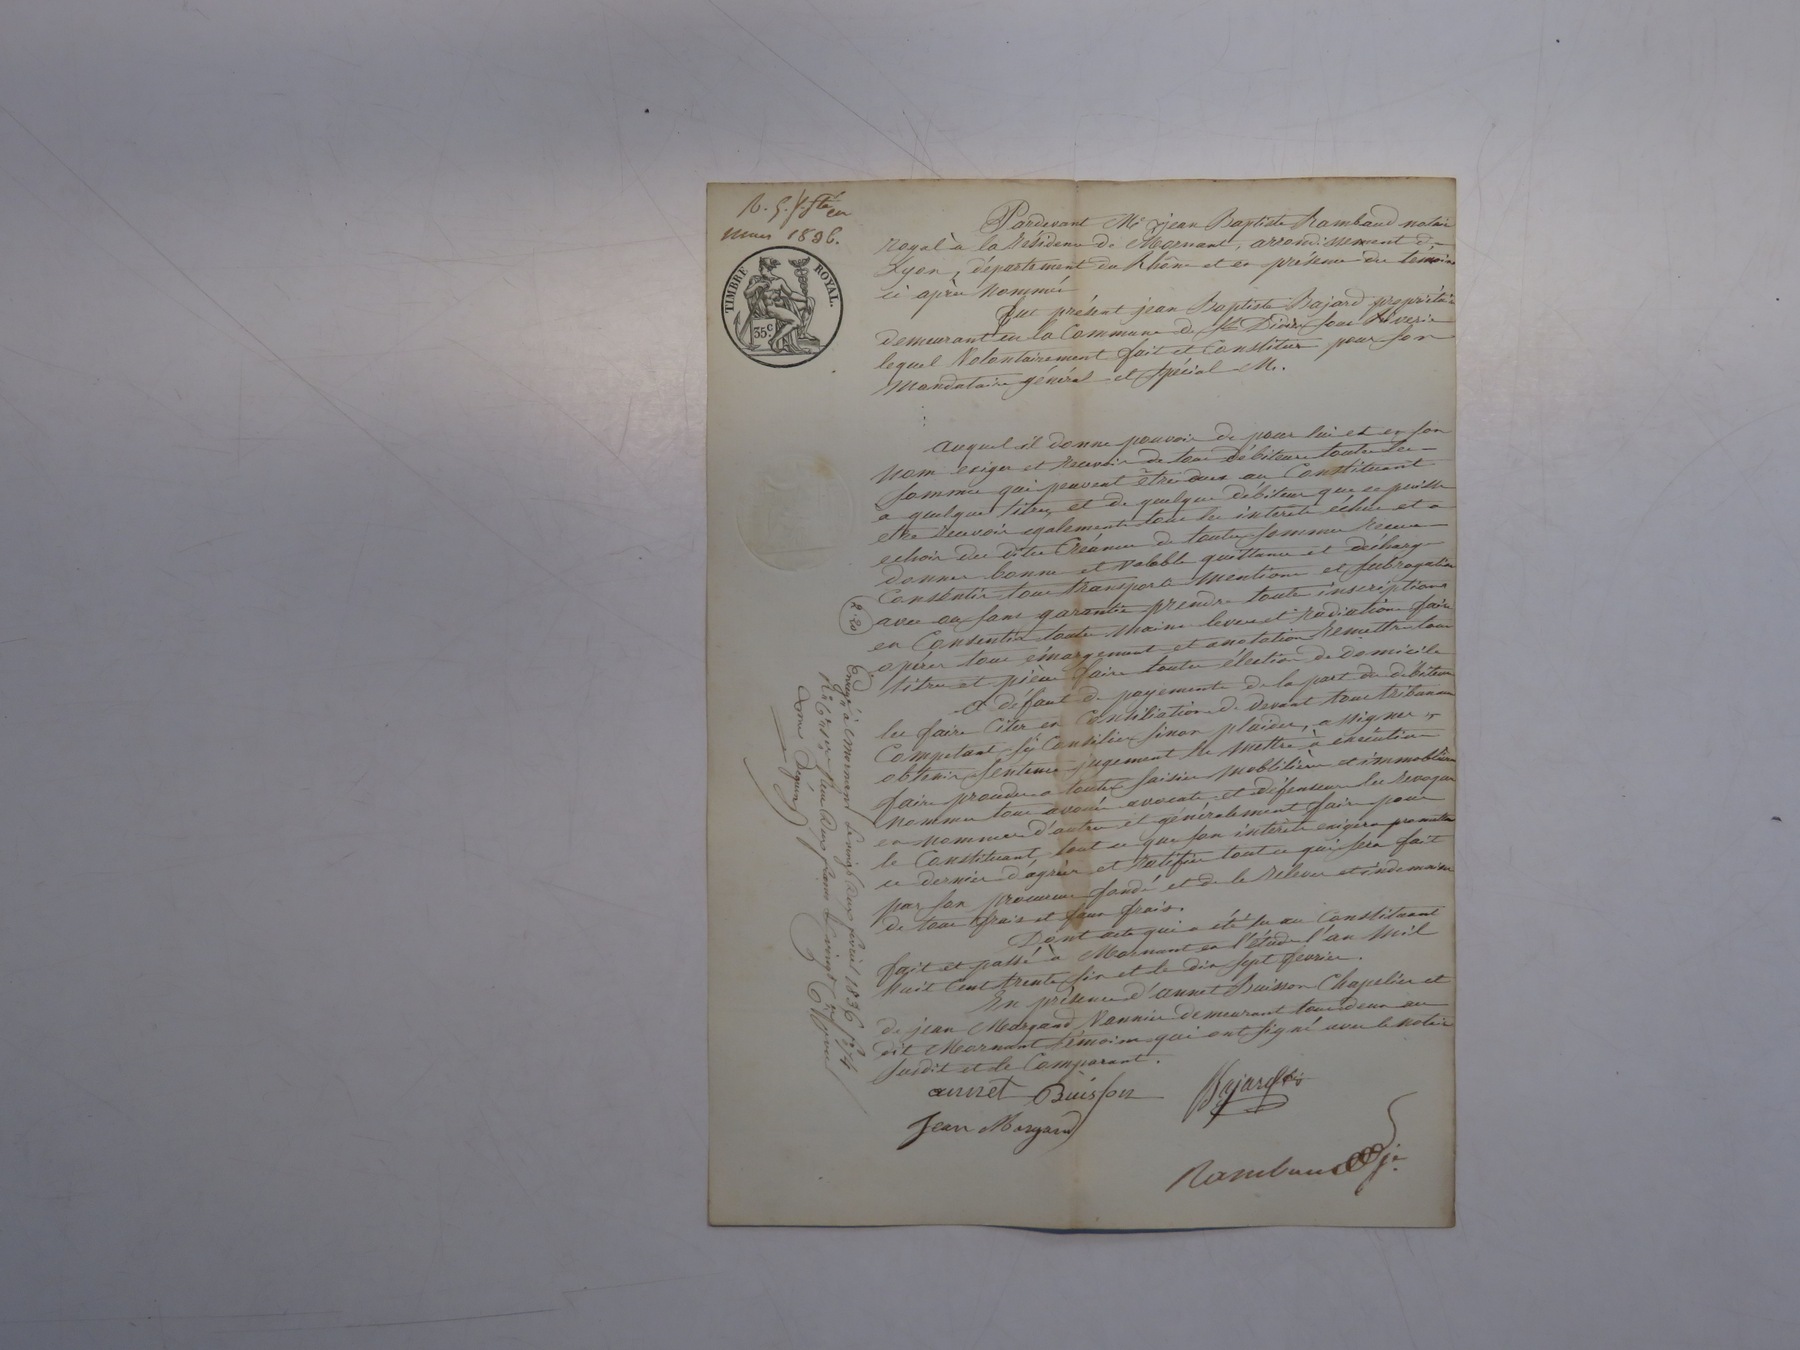 mars 1836.
TIMBRE ROYAL.
35c
Pardevant Me jean Baptiste Rambaud notaire
Royal à la Résidence de Mornant, arrondissement de
Lyon, département du Rhône et en présence des témoins
ci après nommés
fut présent jean Baptiste Bajard propriétaire
demeurant en la Commune de St Didier sous Riverie
lequel Volontairement fait et Constitue pour son
Mandataire général et spécial M.
auquel il donne pouvoir de pour lui et en son
nom exiger et recevoir de tous débiteurs toutes les
sommes qui peuvent être dues au Constituant
a quelque titre, et de quelque débiteur que ce puisse
etre recevoir egalement tous les interets échus et a
echoir des dites Créances de toutes sommes recues
donner bonne et Valable quittance et décharge
Consentir tous transports mentions et subrogations
avec ou sans garantie prendre toutes inscriptions
en Consentir toute main levée et radiation faire
opérer tous émargement et anotation Remettre tous
titres et pièces faire toutes élection de domicile
A défaut de payements de la part des débiteurs
les faire Citer en Consiliation et devant tous tribunaux
Competant s'y Consilier sinon plaider, assigner
obtenir sentence jugement les mettre à exécution
faire procéder a toutes saisies mobilières et immobilières
nommer tous avoués avocats et défenseurs les revoquer
en nommer d'autres et généralement faire pour
le Constituant, tout ce que son intérêt exigera promettant
ce dernier d'agréer et Ratifier tout ce qui sera fait
par son procureur fondé et de le Relever et indemniser
de tous frais et faux frais.
Dont acte qui a été lu au Constituant
fait et passé à Mornant en l'étude l'an Mil
huit Cent trente six et le dix sept février.
En présence d'annet Buisson Chapelier et
de jean Margand Vannier demeurant tous deux au
dit Mornant témoins qui ont signé avec le notaire
susdit et le Comparant.
annet Buisson
Bajard
jean Margand
Rambaud
2.20
Enregé à Mornant le vingt deux février 1836 fo 74
Ro Reçu deux francs vingt